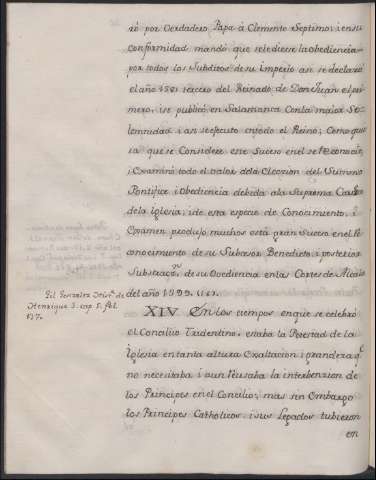 ró por Verdadero Papa à Clemente Septimo; i en su
conformidad mandó que se le diese la obediencia
por todos los Subditos de su Imperio asi se declaró
el año 1381 tercero del Reinado de Don Juan el pri-
mero, i se publicó en Salamanca con la maior So-
lemnidad i asi se efecuto en todo el Reino; Como quie
ra que se Considere este Suceso en el se Reconocio,
i Examinó todo el valor de la Eleccion del Sumo
Pontifice i Obediencia debida ala Suprema Cabeza
de la Iglesia, i de esta especie de Conocimiento, i
Examen produjo muchos está gran Suceso en el Re
conocimiento de su Subcesor Benedicto i posterior
Substracⁿ. de su Ovediencia en las Cortes de Alcala
del año 1399.
Gil Gonzalez Histᵃ. de
Henrique 3. cap. 5. fol.
137.
XIV. En los tiempos en que se celebró
el Concilio Tridentino, estaba la Potestad de la
Iglesia en tanta altura Exaltacion i grandeza qᵉ.
no necesitaba i aun Reusaba la interbenzion de
los Principes en el Concilio; mas sin Embargo
los Principes Catholicos, i sus Legados tubieron
en